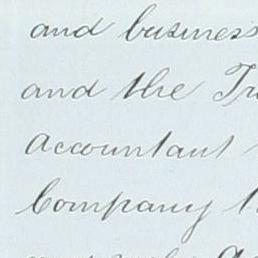 and business
and the
Accountant
Company